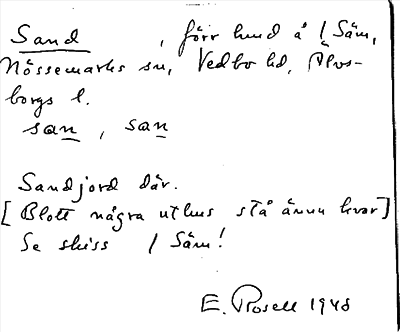 Sand , förr lund å / Säm,
Nössemarks sn, Vedbo hd, Älvs-
borgs l.
san , san
Sandjord där.
[Blott några uthus stå ännu kvar]
Se skiss / Säm!
E. Rosell 1948